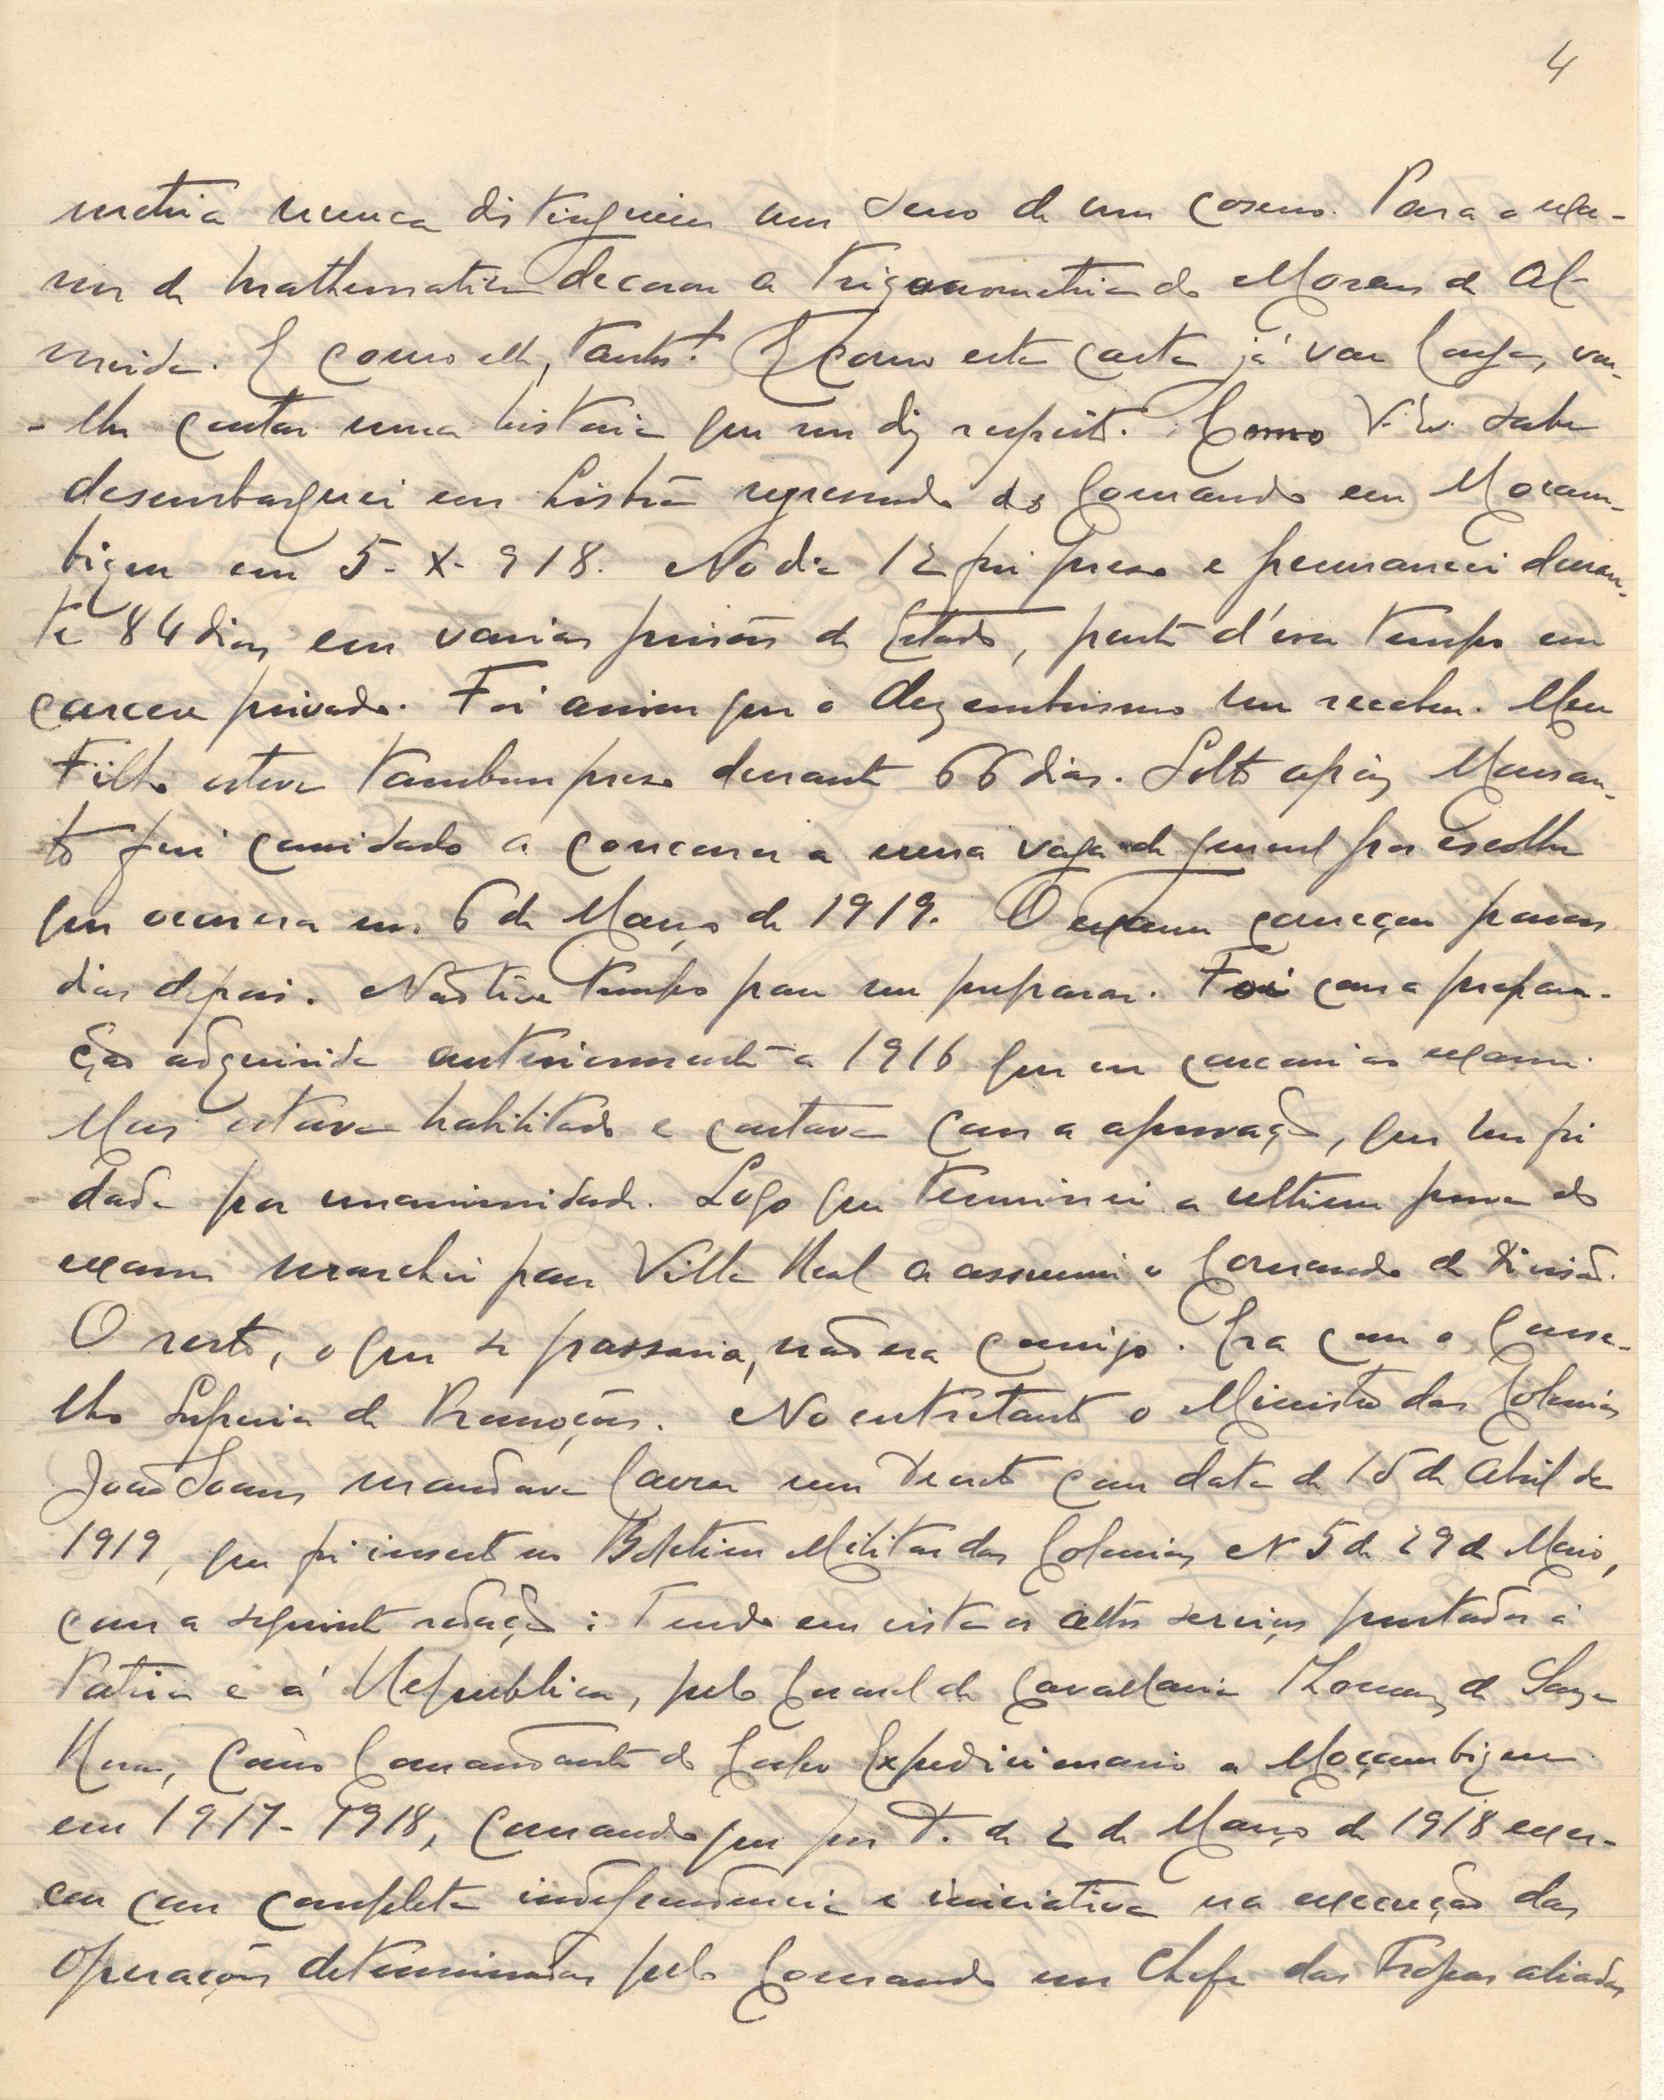 4
metria nunca distinguiu um seno de um coseno. Para o exa-
me de mathematica decorou a Trigonometria do Moraes de Al-
meida. E como elle, tantos! E como esta carta já vae longa, vou-
-lhe contar uma historia que me diz respeito. Como V. Ex. sabe
desembarquei em Lisboa regressando do Comando em Moçam-
bique em 5-X-918. No dia 12 fui preso e permaneci duran-
te 84 dias em varias prisões do Estado, parte d'esse tempo em
carcere privado. Foi assim que o dezembrismo me recebeu. Meu
Filho esteve tambem preso durante 66 dias. Solto após Monsan-
to fui convidado a concorrer a uma vaga de general por escolha
que ocorrera em 6 de Março de 1919. O exame começou poucos
dias depois. Não tive tempo para me preparar. Foi com a prepara-
ção adquirida anteriormente a 1916 que eu concorri ao exame.
Mas estava habilitado e contava com a aprovação, que me foi
dada por unanimidade. Logo que terminei a ultima prova do
exame marchei para Villa Real a assumir o Comando da Divisão.
O resto, o que se passaria, não era comigo. Era com o Conse-
lho Superior de Promoções. No entretanto o Ministro das Colonias
João Soares mandava lavrar um Decreto com data de 15 de Abril de
1919, que foi inserto no Boletim Militar das Colonias Nº 5 de 29 de Maio,
com a seguinte redação: Tendo em vista os altos serviços prestados á
Patria e á Republica, pelo Coronel de Cavallaria Thomaz de Souza
Rosa, como Comandante do Corpo Expedicionario a Moçambique
em 1917-1918, comando que por D. de 2 de Março de 1918 exer-
ceu com completa independencia e iniciativa na execução das
operações determinadas pelo Comando em Chefe das Tropas aliadas